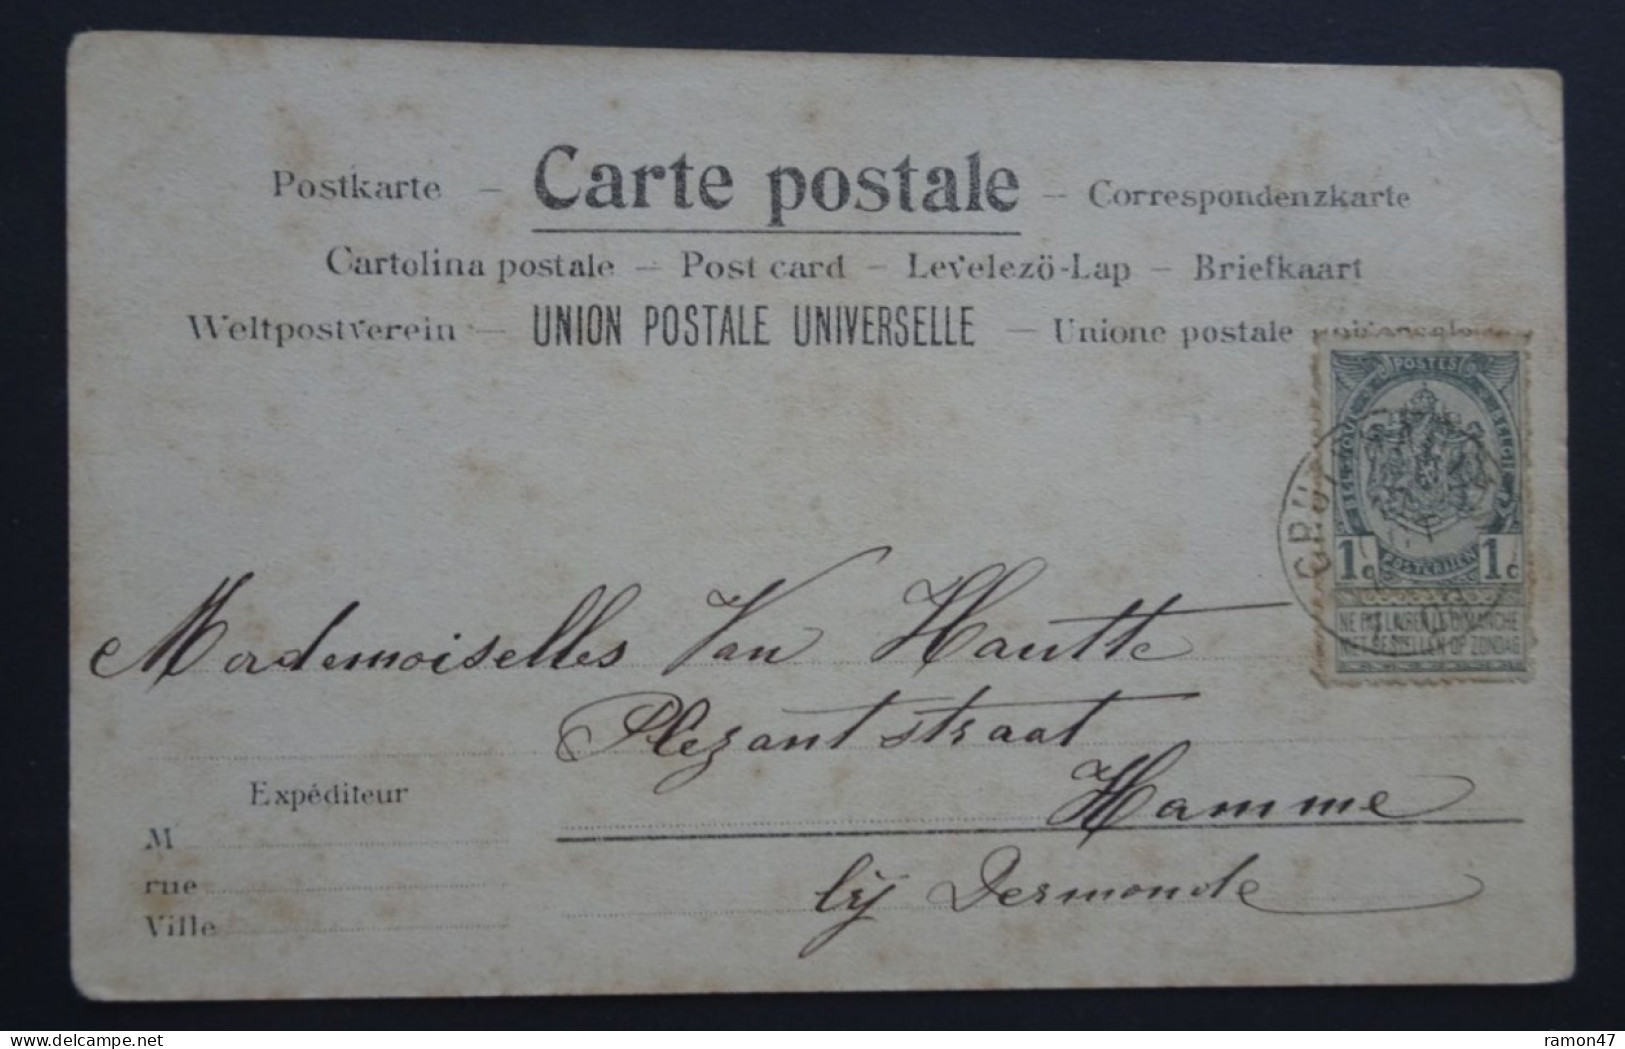 Postkarte – Carte postale – Correspondenzkarte
Cartolina postale – Post card – Levelező-Lap – Briefkaart
Weltpostverein – UNION POSTALE UNIVERSELLE – Unione postale
POSTES
BELGIQUE BELGIË
1c POSTERIJEN 1c
NE PAS LIVRER LE DIMANCHE
NIET BESTELLEN OP ZONDAG
Mademoiselles Van Hautte
Plezantstraat
Hamme
bij Dermonde
Expéditeur
M
rue
Ville
delcampe.net
ramon47